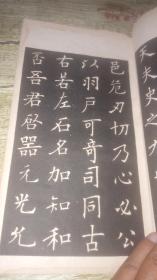 天夫史之
邑危刃切乃心必公
以羽戶可奇司同古
右若左石名加知和
否吾君啓器元光允